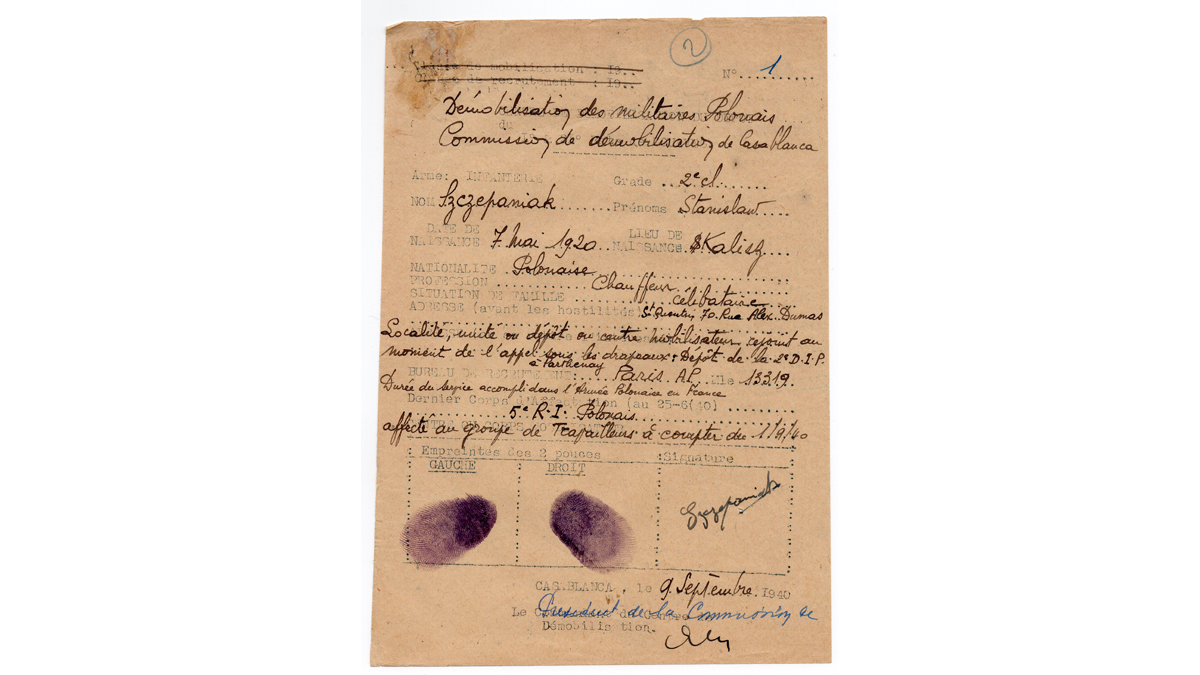 2
Classe de mobilisation : 19..
Classe de recrutement : 19..
N° 1
Démobilisation des militaires Polonais
Commission de démobilisation de Casablanca
Arme: INFANTERIE Grade 2e cl.
NOM Szczepaniak Prénoms Stanislaw
DATE DE NAISSANCE 7 Mai 1920 LIEU DE NAISSANCE Kalisz
NATIONALITE Polonaise
PROFESSION Chauffeur
SITUATION DE FAMILLE célibataire
ADRESSE (avant les hostilités) St Quentin 70. Rue Alex. Dumas
Localité, unité ou dépôt ou centre mobilisateur rejoint au
moment de l'appel sous les drapeaux: Dépôt de la 2e D.I.P.
à Parthenay
BUREAU DE RECRUTEMENT: Paris. AP. Mle 13319.
Durée du service accompli dans l'Armée Polonaise en France
Dernier Corps d'Affectation (au 25-6-40)
5e R.I. Polonais
affecté au groupe de Travailleurs à compter du 1/9/40
Empreintes des 2 pouces :Signature
GAUCHE DROIT
Szczepaniak
CASABLANCA, le 9 Septembre 1940
Le President de la Commission de
Démobilisation.